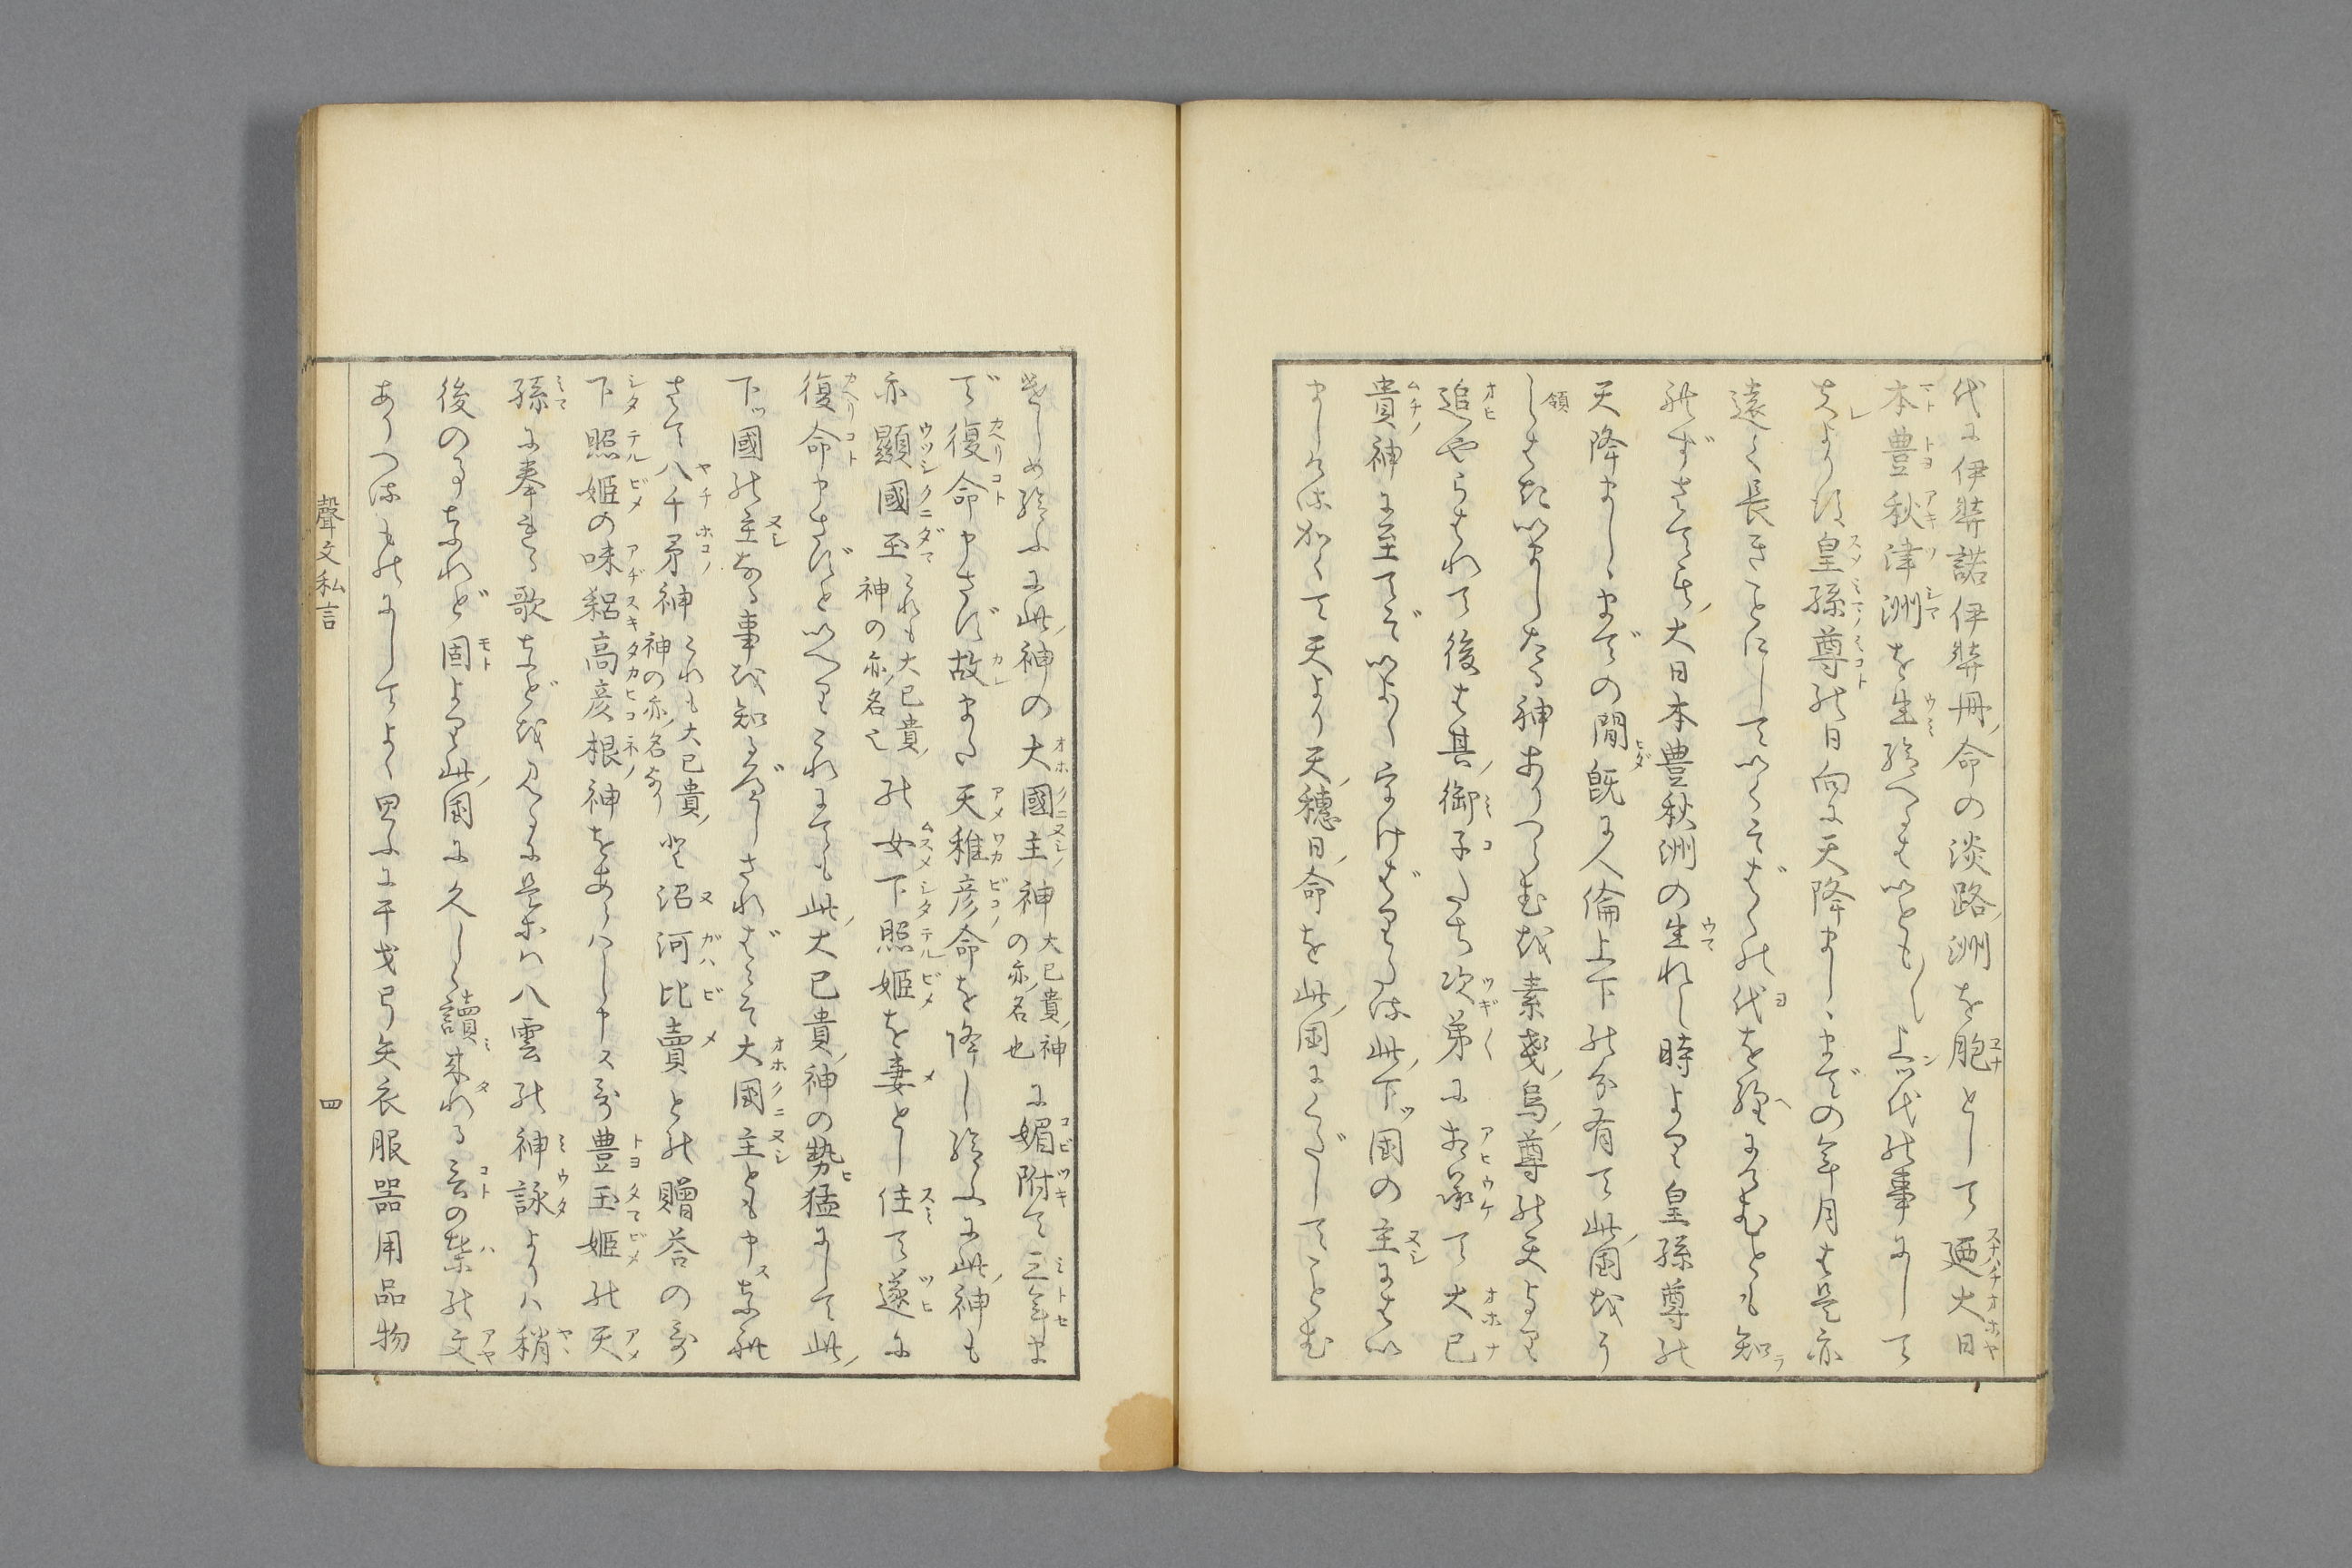 代に伊弉諾伊弉冊命の淡路洲を胞として廼大日
本豊秋津洲を生給へるはいとも〳〵上ツ代の事にして
夫より後皇孫尊の日向に天降ましゝまでの年月も是亦
遠く長きことにしていくそばくの代を経にけむとも知
れずさて又大日本豊秋洲の生れし時より皇孫尊の
天降ましゝまでの間既に人倫上下の分有て此国をう
しはきいましたる神ありつらむを素戔烏尊の天より
追やらはれて後は其御子たち次第にあひ承て大己
貴神に至てぞいよゝ うけばりたる此下ツ国の主にはい
ましける かくて天より天穂日命を此国にくだしてことむ
けしめ給ふに此神の大國主神大己貴神の亦名也に媚附て三年ま
で復命申さず故また天稚彦命を降し給ふに此神も
亦顯國玉これも大己貴神の亦名也の女下照姫を妻とし住て遂に
復命申さずといへりこれにても此大己貴神の勢猛にして此
下ッ國の主なる事を知るべしさればこそ大國主とも申スなれ
さて八千矛神これも大己貴神の亦名なりと沼河比賣との贈答の哥
下照姫の味耜高彦根神をあらはし申ス哥豊玉姫の天
孫に奉れる歌などを見るに是等ハ八雲の神詠よりハ稍
後の事なれど固より此國に久しく讀来れる言の葉の文
ありつるものにしてよく思ふに干戈弓矢衣服器用品物
聲文私言
四